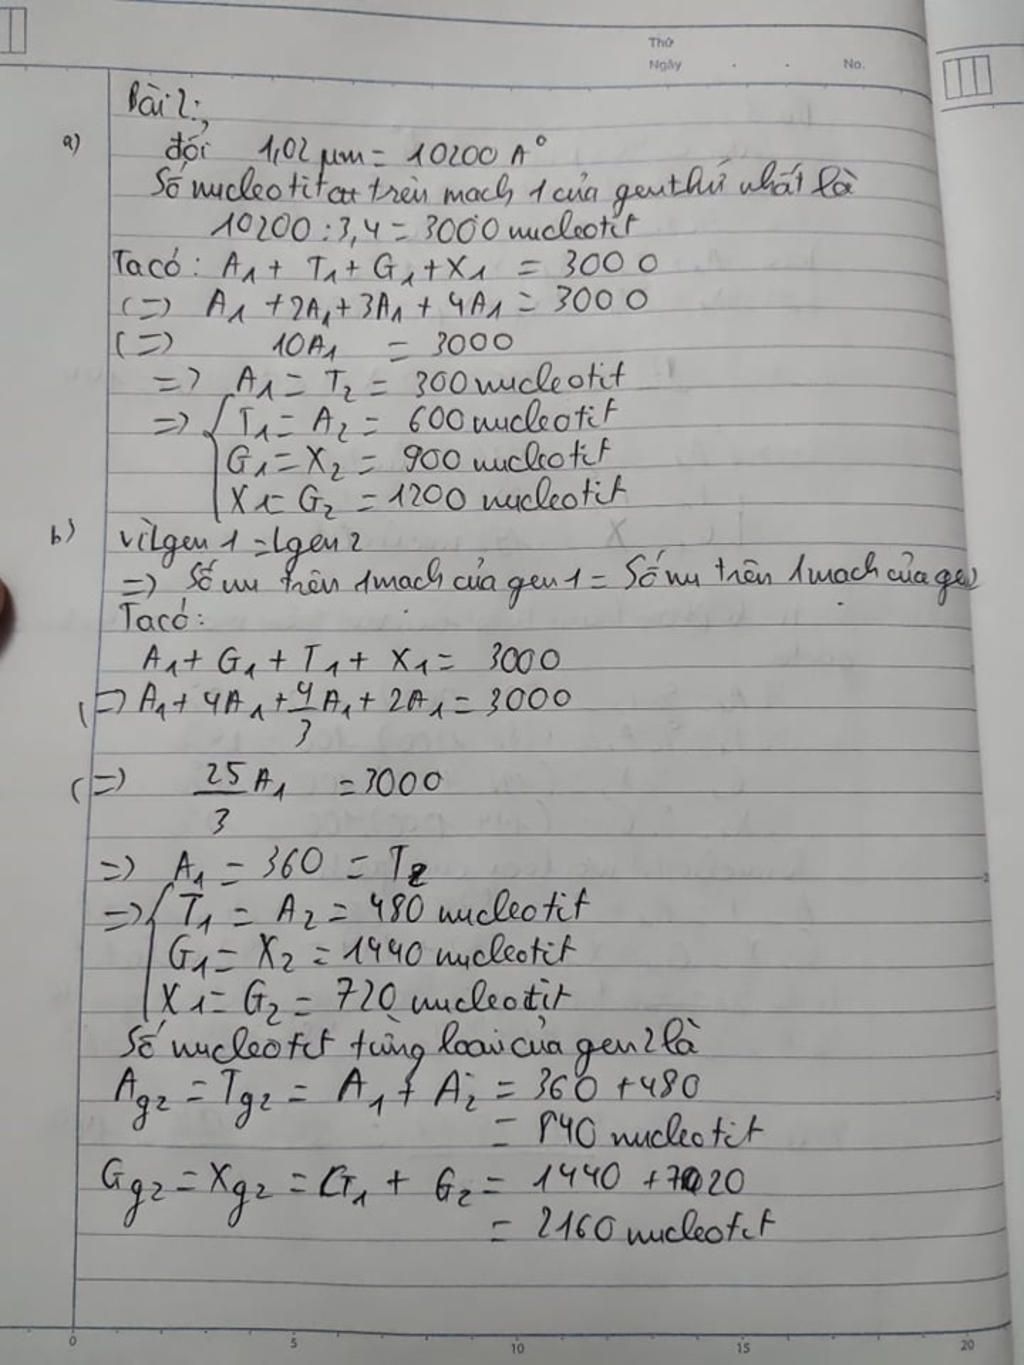 Thứ
Ngày . . No.
Bài 2:
a) đổi 1,02 µm = 10200 A°
Số nucleotit trên mạch 1 của gen thứ nhất là
10200 : 3,4 = 3000 nucleotit
Ta có: A1 + T1 + G1 + X1 = 3000
(=) A1 + 2A1 + 3A1 + 4A1 = 3000
(=) 10A1 = 3000
=> A1 = T2 = 300 nucleotit
=> { T1 = A2 = 600 nucleotit
G1 = X2 = 900 nucleotit
X1 = G2 = 1200 nucleotit
b) vì lgen 1 = lgen 2
=> Số nu trên 1 mạch của gen 1 = Số nu trên 1 mạch của ge
Ta có:
A1 + G1 + T1 + X1 = 3000
(=) A1 + 4A1 + 4/3 A1 + 2A1 = 3000
(=) 25/3 A1 = 3000
=> A1 = 360 = T2
=> { T1 = A2 = 480 nucleotit
G1 = X2 = 1440 nucleotit
X1 = G2 = 720 nucleotit
Số nucleotit từng loại của gen 2 là
Ag2 = Tg2 = A1 + A2 = 360 + 480
= 840 nucleotit
Gg2 = Xg2 = G1 + G2 = 1440 + 720
= 2160 nucleotit
0 5 10 15 20